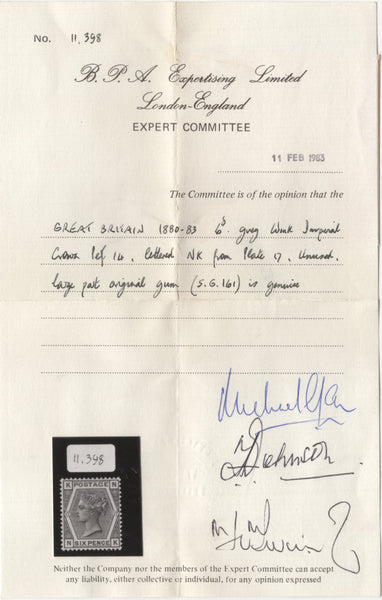 No. 11,398
B. P. A. Expertising Limited
London-England
EXPERT COMMITTEE
11 FEB 1983
The Committee is of the opinion that the
GREAT BRITAIN 1880-83 6d. grey Wmk Imperial
Crown Perf 14, lettered NK from Plate 17, Unused,
large part original gum (S.G.161) is genuine
Michael
Johnson
11,398
K POSTAGE N
N SIX PENCE K
Neither the Company nor the members of the Expert Committee can accept
any liability, either collective or individual, for any opinion expressed